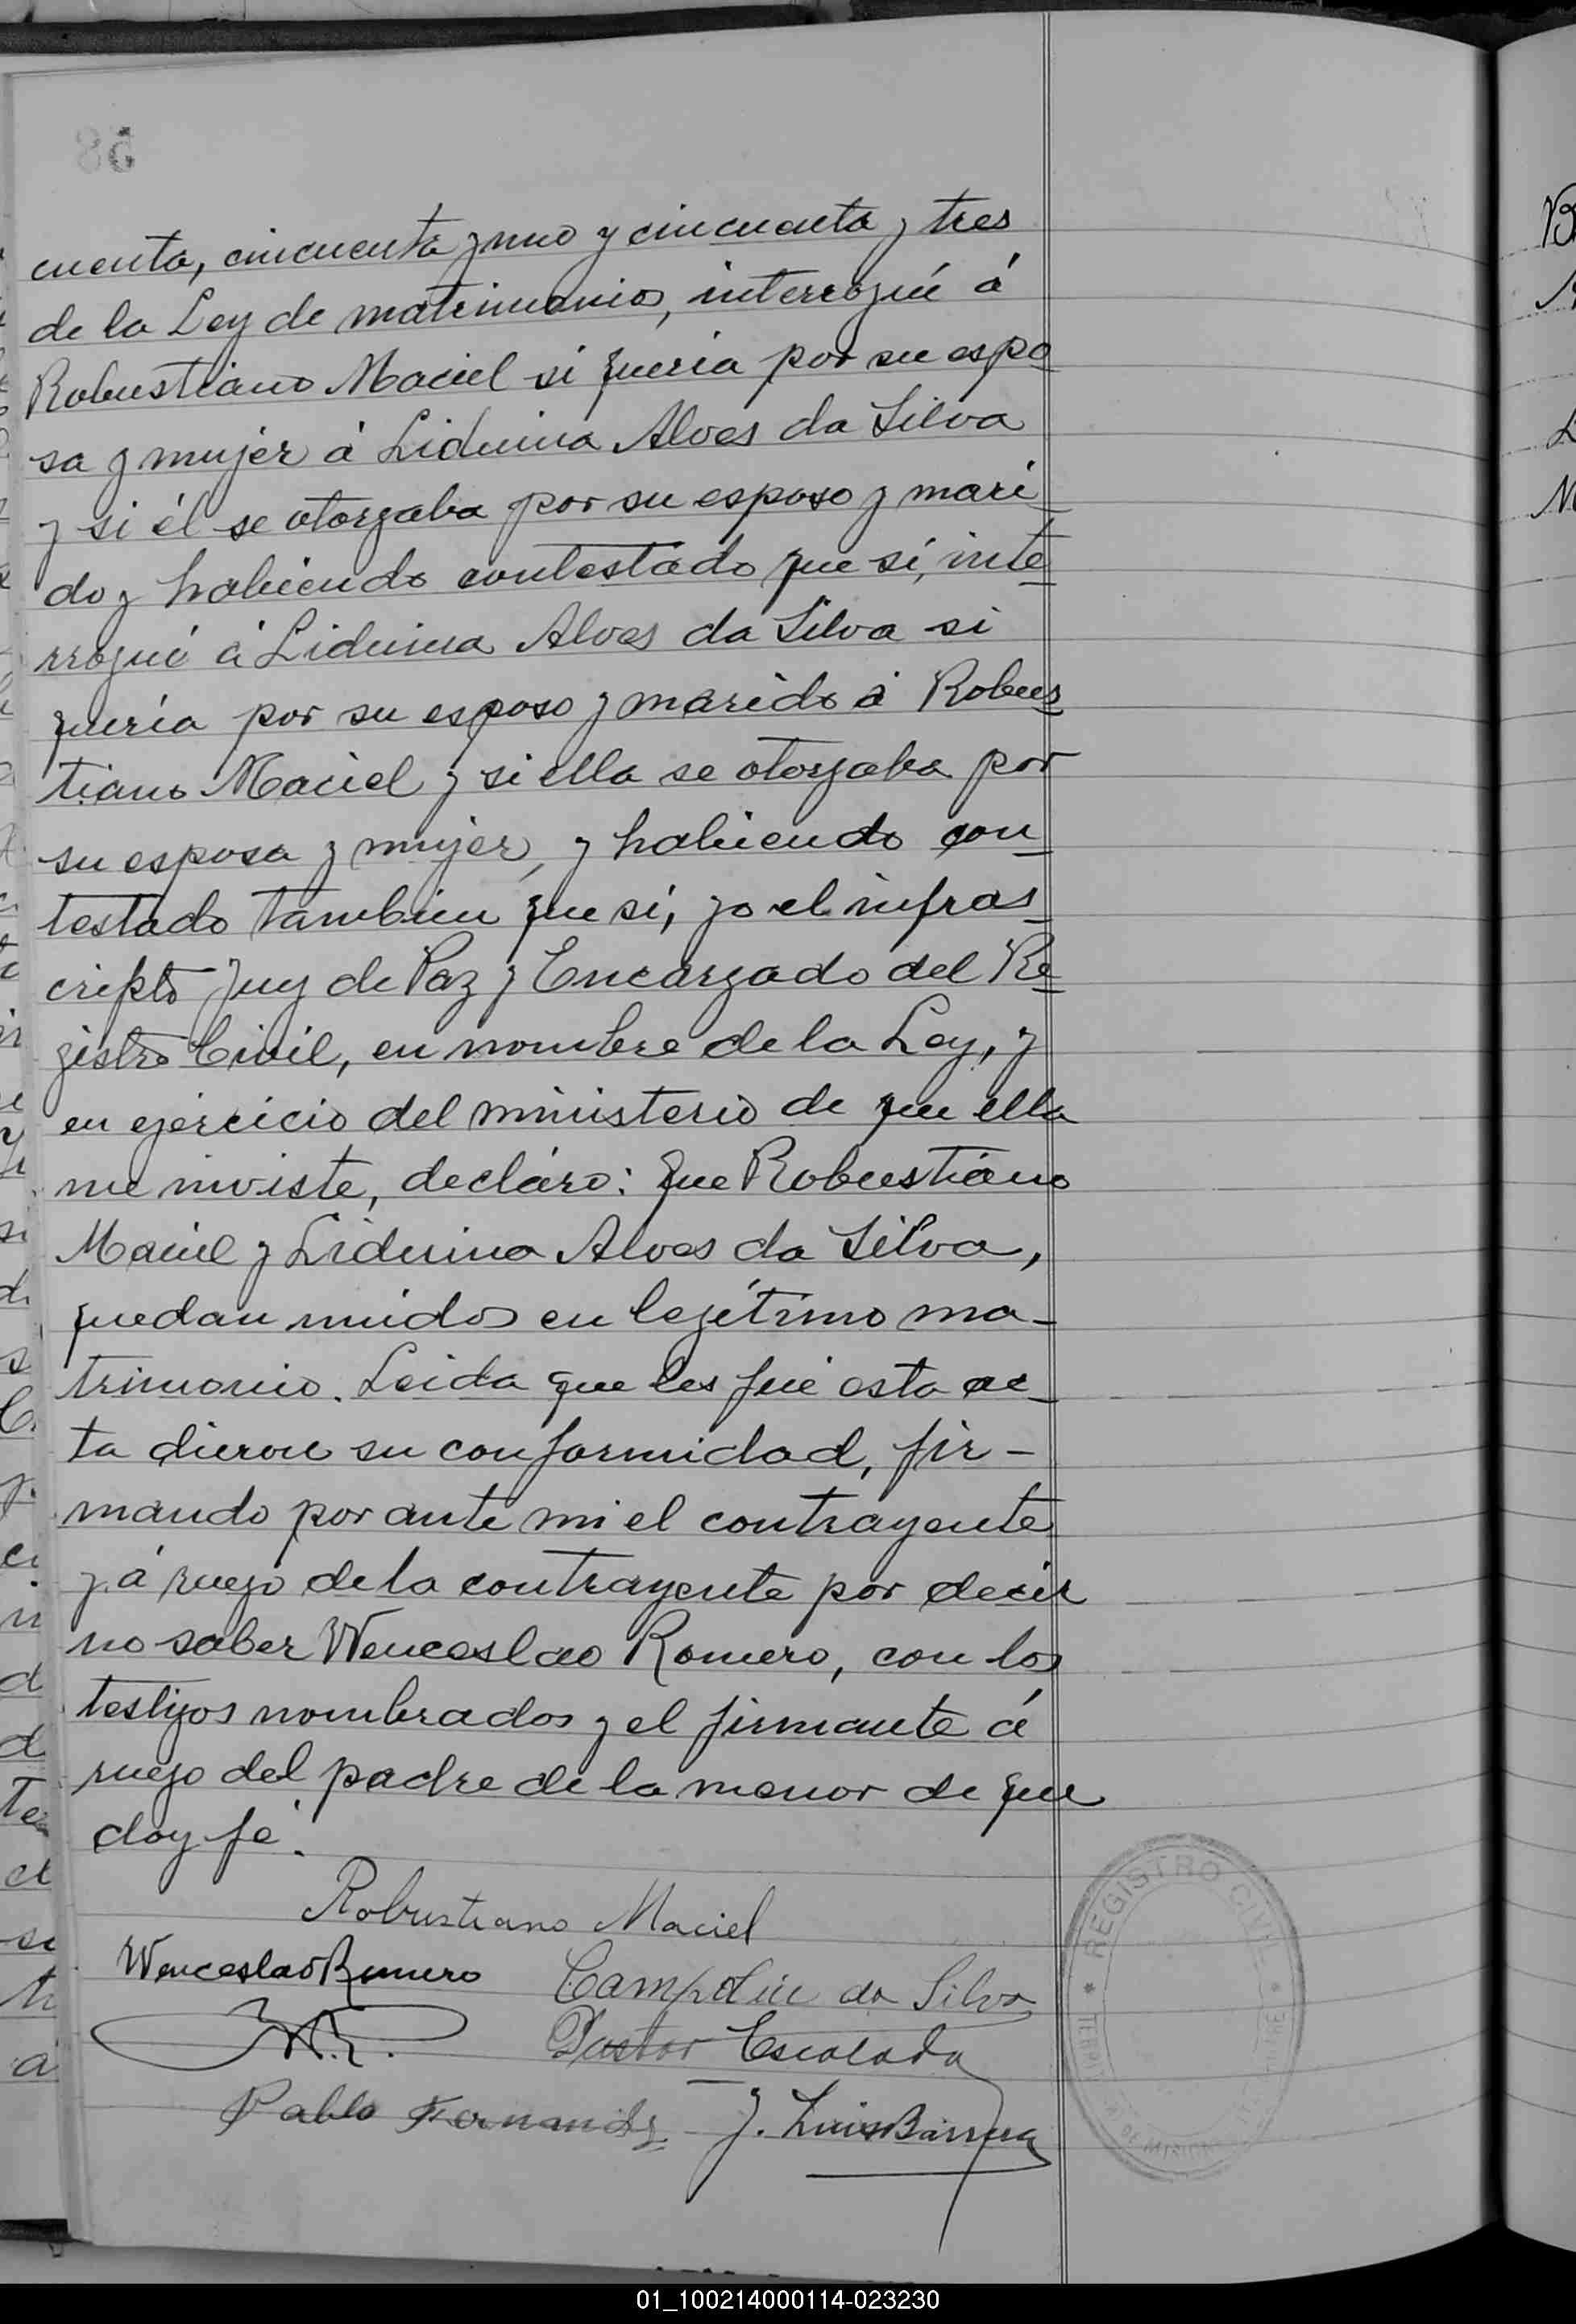 58
cuenta, cincuenta y uno y cincuenta y tres
de la Ley de matrimonio, interrogué á
Robustiano Maciel si queria por su espo
sa y mujer á Liduina Alves da Silva
y si él se otorgaba por su esposo y mari
do y habiendo contestado que si, inte
rrogué á Liduina Alves da Silva si
quería por su esposo y marido á Robus
tiano Maciel y si ella se otorgaba por
su esposa y mujer, y habiendo con
testado tambien que si, yo el infras
cripto Juez de Paz y Encargado del Re
gistro Civil, en nombre de la Ley, y
en ejercicio del ministerio de que ella
me inviste, decláro: que Robustiano
Maciel y Liduina Alves da Silva,
quedan unidos en legítimo ma-
trimonio. Leida que les fué esta ac-
ta dieron su conformidad, fir-
mando por ante mi el contrayente
y á ruego de la contrayente por decir
no saber Wenceslao Romero, con los
testigos nombrados y el firmante á
ruego del padre de la menor de que
doy fé.
Robustiano Maciel
Wenceslao Romero
da Silva
W.R.
Pastor Escalada
Pablo Fernandez
J. Luis Barrera
REGISTRO CIVIL
DE MISIONES
01_100214000114-023230